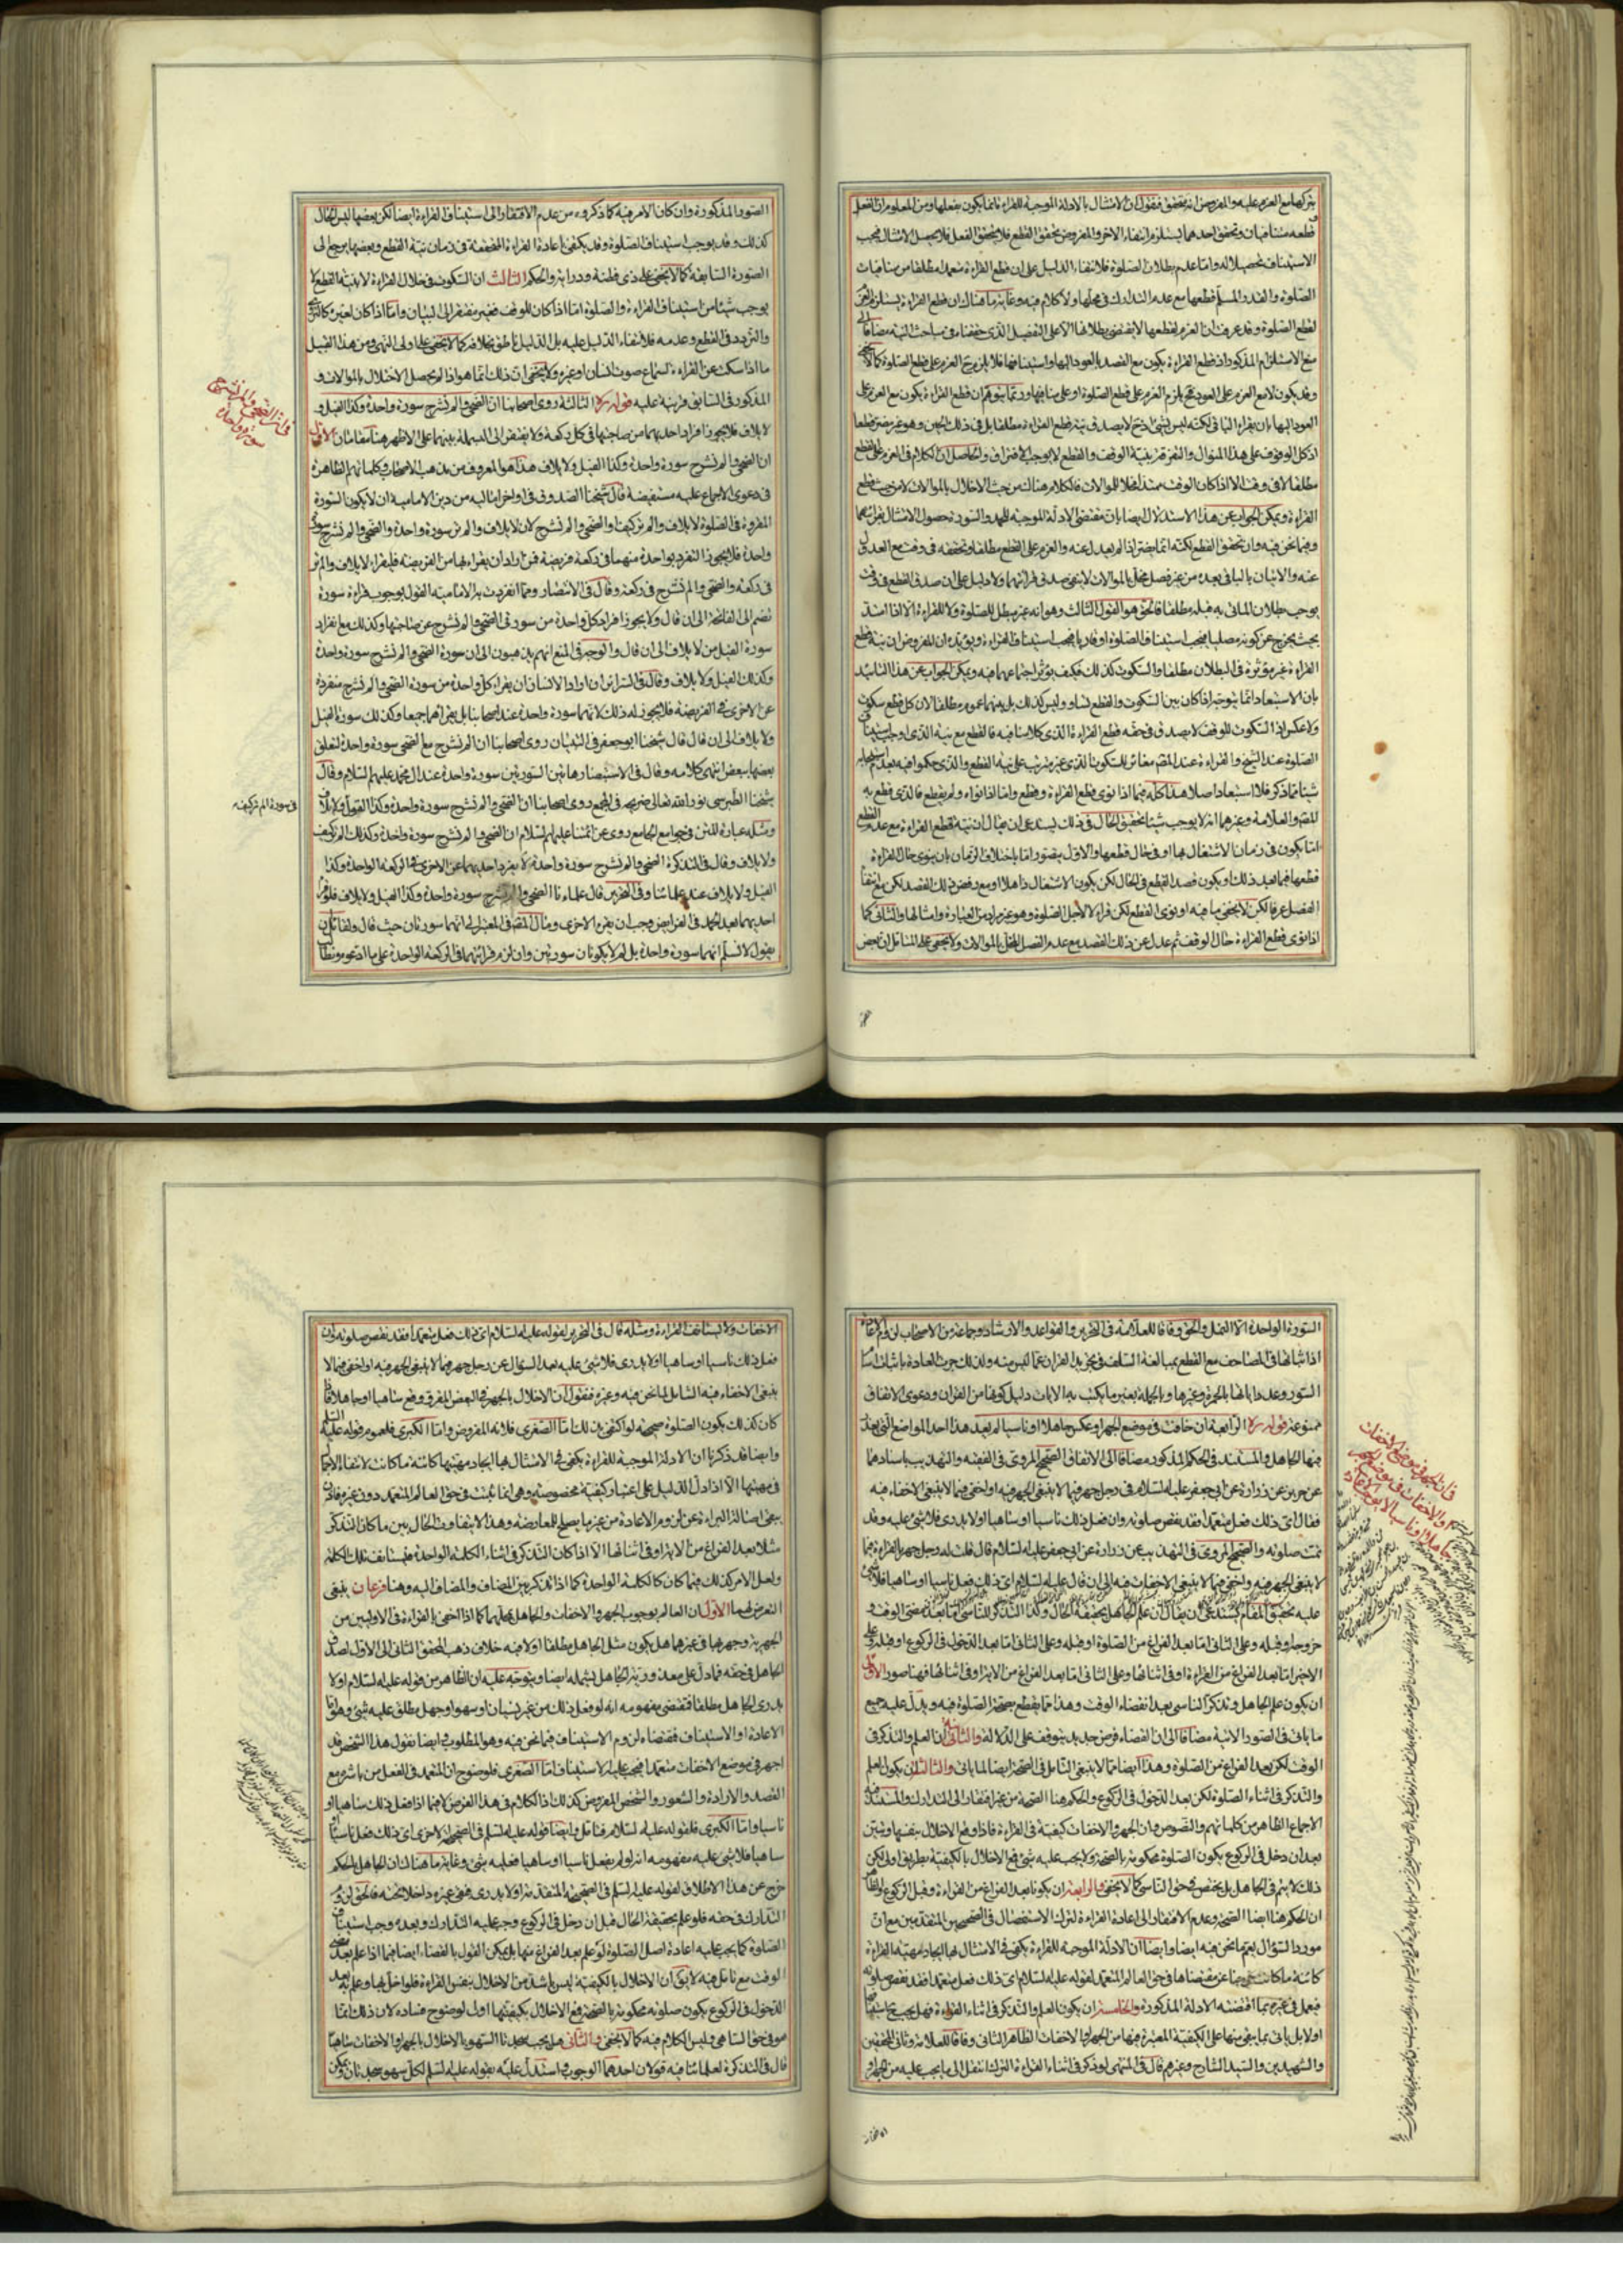 بتركها مع العزم عليه والمفروض انه يتحقق فنقول ان الامتثال بالادلة الموجبة للقراءة انما يكون بفعلها ومن المعلوم ان الفعل
قطعه متنافيان وتحقق احدهما يستلزم انتفاء الاخر والمفروض تحقق القطع فلا يتحقق الفعل فلا يحصل الامثال فيجب
الاستيناف تحصيلا له واما عدم بطلان الصلوة فلانتفاء الدليل على ان قطع القراءة متعمدا مطلقا من منافيات
الصلوة والقدر المسلم قطعها مع عدم التدارك في محلها ولا كلام فيه وغاية ما هناك ان قطع القراءة يستلزم العزم
لقطع الصلوة وقد عرفت ان العزم لقطعها لا يقتضى بطلانها الا على التفصيل الذى حققناه في مباحث النية مضافا الى
منع الاستلزام المذكور اذ قطع القراءة يكون مع القصد بالعود اليها واستينافها فلا يلزم ح العزم على قطع الصلوة كما لا يخفى
وقد يكون لا مع العزم على العود فح يلزم العزم على قطع الصلوة او على منافيها وربما يتوهم ان قطع القراءة يكون مع العزم على
العود اليها بان يقرء الباقى لكنه ليس بشئ اذ ح لا يصدق نية قطع القراءة مطلقا بل في ذلك الحين وهو غير مضر قطعا
اذ كل الوقوف على هذا المنوال والتفرقة بنية الوقف والقطع لا يوجب الافتراق والحاصل ان الكلام في العزم على القطع
مطلقا لا في وقف الا اذا كان الوقف ممتدا مخلا للموالات فالكلام هناك من حيث الاخلال بالموالات لا من حيث قطع
القراءة ويمكن الجواب عن هذا الاستدلال ايضا بان مقتضى الادلة الموجبة للحمد والسورة حصول الامتثال بقرائتهما
وفيما نحن فيه وان تحقق القطع لكنه انما يضر اذا لم يعدل عنه والعزم على القطع مطلقا وتحققه في وقت مع العدول
عنه والاتيان بالباقى بعده من غير فصل مخل بالموالات لا ينفى صدق قرائتهما ولا دليل على ان صدق القطع في وقت
يوجب بطلان الماتى به قبله مطلقا فالحق هو القول الثالث وهو انه غير مبطل للصلوة ولا للقراءة الا اذا امتد
بحيث يخرج عن كونه مصليا فيجب استيناف الصلوة او قاريا فيجب استيناف القراءة ويؤيده ان المفروض ان نية قطع
القراءة غير مؤثرة في البطلان مطلقا والسكوت كذلك فكيف يؤثر اجتماعهما فيه ويمكن الجواب عن هذا التاييد
بان الاستبعاد انما يتوجه اذا كان بين السكوت والقطع تساو وليس كذلك بل بينهما عموم مطلقا لان كل قطع سكوت
ولا عكس اذ السكوت للوقف لا يصدق في حقه قطع القراءة الذى كلامنا فيه فالقطع مع نيته الذى اوجب استيناف
الصلوة عند الشيخ والقراءة عند المص مغائر للسكوت الذى غير مترتب على نية القطع والذى حكموا فيه بعدم استيجابه
شيئا مما ذكر فلا استبعاد اصلا هذا كله فيما اذا نوى قطع القراءة وقطع واما اذا نواه ولم يقطع فالذى قطع به
المص والعلامة وغيرهما انه لا يوجب شيئا تحقيق الحال في ذلك يستدعى ان يقال ان نية قطع القراءة مع عدم القطع
اما يكون في زمان الاشتغال بها او في حال قطعها والاول يتصور اما باختلاف الزمان بان ينوى حال القراءة
قطعها فيما بعد ذلك او يكون قصد القطع في الحال لكن يكون الاشتغال ذاهلا او مع رفض ذلك القصد لكن مع انتفاء
الفصل عرفا لكن لا يخفى ما فيه او نوى القطع لكن قراء لا لاجل الصلوة وهو غير مراد من العبارة وامثالها والثانى كما
اذا نوى قطع القراءة حال الوقف ثم عدل عن ذلك القصد مع عدم الفصل المخل بالموالات ولا يخفى على المتامل ان بعض
الصور المذكورة وان كان الامر فيه كما ذكروه من عدم الافتقار الى استيناف القراءة ايضا لكن بعضها ليس الحال
كذلك وقد يوجب استيناف الصلوة وقد يكفى باعادة القراءة المتحققة في زمان نية القطع وبعضها يرجع الى
الصورة السابقة كما لا يخفى على ذى فطنة ودراية والحكم الثالث ان السكوت في خلال القراءة لا بنية القطع لا
يوجب شيئا من استيناف القراءة والصلوة اما اذا كان للوقف فغير مفتقر الى البيان واما اذا كان لغيره كالتذكر
والتردد في القطع وعدمه فلانتفاء الدليل عليه بل الدليل ناطق بخلافه كما لا يخفى على اولى النهى ومن هذا القبيل
ما اذا سكت عن القراءة لسماع صوت انسان او غيره ولا يخفى ان ذلك انما هو اذا لم يحصل الاختلال بالموالات و
المذكور في السابق قرينة عليه قوله ره الثالثة روى اصحابنا ان الضحى والم نشرح سورة واحدة وكذا الفيل و
لايلاف فلا يجوز افراد احديهما من صاحبتها في كل ركعة ولا يفتقر الى البسملة بينهما على الاظهر هنا مقامان الاول
ان الضحى والم نشرح سورة واحدة وكذا الفيل ولايلاف هذا هو المعروف من مذهب الاصحاب وكلماتهم الظاهرة
في دعوى الاجماع عليه مستفيضة قال شيخنا الصدوق في اواخر اماليه من دين الامامية ان لا يكون السورة
المقروة في الصلوة لايلاف والم تر كيف والضحى والم نشرح لان لايلاف والم تر سورة واحدة والضحى والم نشرح سورة
واحدة فلا يجوز التفرد بواحدة منهما في ركعة فريضة فمن اراد ان يقراء بهما من الفريضة فليقراء لايلاف والم تر
في ركعة والضحى والم نشرح في ركعة وقال في الانتصار ومما انفردت به الامامية القول بوجوب قراءة سورة
تضم الى الفاتحة الى ان قال ولا يجوز افراد كل واحدة من سورتى الضحى والم نشرح عن صاحبتها وكذلك مع انفراد
سورة الفيل من لايلاف الى ان قال والوجه في المنع انهم يذهبون الى ان سورة الضحى والم نشرح سورة واحدة
وكذلك الفيل ولايلاف وقال في السرائر ان اراد الانسان ان يقراء كل واحدة من سورة الضحى والم نشرح منفردة
عن الاخرى في الفريضة فلا يجوز له ذلك لانهما سورة واحدة عند اصحابنا بل يقراهما جميعا وكذلك سورة الفيل
ولايلاف الى ان قال قال شيخنا ابو جعفر في التبيان روى اصحابنا ان الم نشرح مع الضحى سورة واحدة لتعلق
بعضها ببعض انتهى كلامه وقال في الاستبصار هاتين السورتين سورة واحدة عند ال محمد عليهم السلام وقال
شيخنا الطبرسى نور الله تعالى ضريحه في المجمع روى اصحابنا ان الضحى والم نشرح سورة واحدة وكذا القول ولايلاف
ومثله عبارة المتن في جوامع الجامع روى عن ائمتنا عليهم السلام ان الضحى والم نشرح سورة واحدة وكذلك الم تر كيف
ولايلاف وقال في التذكرة الضحى والم نشرح سورة واحدة لا يفرد احديهما عن الاخرى في الركعة الواحدة وكذا
الفيل ولايلاف عند علمائنا وفى التحرير قال علماءنا الضحى والم نشرح سورة واحدة وكذا الفيل ولايلاف فلو قرأ
احديهما بعد الحمد في الفرايض وجب ان يقرء الاخرى ومال المص في المعتبر الى انهما سورتان حيث قال ولقائل ان
يقول لا نسلم انهما سورة واحدة بل لم لا يكونان سورتين وان لزم قرائتهما في الركعة الواحدة على ما ادعوه ونطالب
في ان الضحى والم نشرح
سورة واحدة
في سورة الم تر كيف
السورة الواحدة الا النمل والحق وفاقا للعلامة في التحرير والقواعد والارشاد وجماعة من الاصحاب لزوم الاعادة
اذ اثباتها في المصاحف مع القطع بمبالغة السلف في تجريد القران عما ليس منه ولذلك جرت العادة باثبات اسماء
السور وعدد اياتها بالحمرة وغيرها وبالجملة بغير ما يكتب به الايات دليل كونها من القران ودعوى الاتفاق
ممنوعة قوله ره الرابعة ان خافت في موضع الجهر او عكس جاهلا او ناسيا لم يعد هذا احد المواضع التى يعذر
فيها الجاهل والمستند في الحكم المذكور مضافا الى الاتفاق الصحيح المروى في الفقيه والتهذيب باسنادهما
عن حريز عن زرارة عن ابى جعفر عليه السلام في رجل جهر فيما لا ينبغى الجهر فيه او اخفى فيما لا ينبغى الاخفاء فيه
فقال اى ذلك فعل متعمدا فقد نقض صلوته وان فعل ذلك ناسيا او ساهيا او لا يدرى فلا شئ عليه وقد
تمت صلوته والصحيح المروى في التهذيب عن زرارة عن ابى جعفر عليه السلام قال قلت له رجل جهر بالقراءة فيما
لا ينبغى الجهر فيه واخفى فيما لا ينبغى الاخفات فيه الى ان قال عليه السلام اى ذلك فعل ناسيا او ساهيا فلا شئ
عليه تحقيق المقام يستدعى ان يقال ان علم الجاهل بحقيقة الحال وكذا التذكر للناسى اما بعد مضى الوقت و
خروجه او قبله وعلى الثانى اما بعد الفراغ من الصلوة او قبله وعلى الثانى اما بعد الدخول في الركوع او قبله وعلى
الاخير اما بعد الفراغ من القراءة او في اثنائها وعلى الثانى اما بعد الفراغ من الاية او في اثنائها فهنا صور الاولى
ان يكون علم الجاهل وتذكر الناسى بعد انقضاء الوقت وهذا مما يقطع بصحة الصلوة فيه ويدل عليه جميع
ما ياتى في الصور الاتية مضافا الى ان القضاء فرض جديد يتوقف على الدلالة والثانية ان العلم والتذكر في
الوقت لكن بعد الفراغ من الصلوة وهذا ايضا مما لا ينبغى التامل في الصحة ايضا لما ياتى والثالثة ان يكون العلم
والتذكر في اثناء الصلوة لكن بعد الدخول في الركوع والحكم هنا الصحة من غير افتقار الى التدارك والمستند فيه
الاجماع الظاهر من كلماتهم والنصوص وان الجهر والاخفات كيفية في القراءة فاذا وقع الاخلال بنفسها وتبين
بعد ان دخل في الركوع يكون الصلوة محكومة بالصحة ولا يجب عليه شئ فمع الاخلال بالكيفية بطريق اولى لكن
ذلك لا يتم في الجاهل بل يختص في حق الناسى كما لا يخفى والرابعة ان يكونا بعد الفراغ من القراءة وقبل الركوع والظاهر
ان الحكم هنا ايضا الصحة وعدم الافتقار الى اعادة القراءة لترك الاستفصال في الصحيحين المتقدمين مع ان
مورد السؤال يعم ما نحن فيه ايضا وايضا ان الادلة الموجبة للقراءة يكفى في الامتثال لها ايجاد مهيتها القراءة
كائنة ما كانت خرجنا عن مقتضاها في حق العالم المتعمد لقوله عليه السلام اى ذلك فعل متعمدا فقد نقض صلوته
فيعمل في غيره بما اقتضته الادلة المذكورة والخامسة ان يكون العلم والتذكر في اثناء القراءة فهل يجب ح استينافها
اولا بل ياتى بما بقى منها على الكيفية المعتبرة فيها من الجهر او الاخفات الظاهر الثانى وفاقا للعلامة وثانى المحققين
والشهيدين والسيد الشارح وغيرهم قال في المنتهى لو ذكر في اثناء القراءة الترك انتقل الى ما يجب عليه من الجهر او
فى ان الجهر في موضع الاخفات
والاخفات في موضع الجهر
جاهلا او ناسيا لا يوجب الاعادة
الاخفات
الاخفات ولا يستانف القراءة ومثله قال في التحرير لقوله عليه السلام اى ذلك فعل متعمدا فقد نقض صلوته وان
فعل ذلك ناسيا او ساهيا او لا يدرى فلا شئ عليه بعد السؤال عن رجل جهر فيما لا ينبغى الجهر فيه او اخفى فيما لا
ينبغى الاخفاء فيه الشامل لما نحن فيه وغيره فنقول ان الاخلال بالجهر في البعض المقرو وقع ساهيا او جاهلا فاذا
كان كذلك يكون الصلوة صحيحة لو اكتفى بذلك اما الصغرى فلانه المفروض واما الكبرى فلعموم قوله عليه السلام
وايضا قد ذكرنا ان الادلة الموجبة للقراءة يكفى في الامتثال بها ايجاد مهيتها كائنة ما كانت لانتفاء الاجمال
في مهيتها الا اذا دل الدليل على اعتبار كيفية مخصوصة وهى انما ثبتت في حق العالم المتعمد دون غيره فاذن
يبقى اصالة البراءة عن لزوم الاعادة من غير ما يصلح للمعارضة وهذا لا يتفاوت الحال بين ما كان التذكر
مثلا بعد الفراغ من الاية او في اثنائها الا اذا كان التذكر في اثناء الكلمة الواحدة فيستانف تلك الكلمة
ولعل الامر كذلك فيما كان كالكلمة الواحدة كما اذا تذكر بين المضاف والمضاف اليه وهنا فرعان ينبغى
التعرض لهما الاول ان العالم بوجوب الجهر والاخفات والجاهل بمحلهما كما اذا اخفى بالقراءة في الاوليين من
الجهرية وجهر بها في غيرهما هل يكون مثل الجاهل مطلقا اولا فيه خلاف ذهب المحقق الثانى الى الاول لصدق
الجاهل في حقه فما دل على معذورية الجاهل يشمله ايضا ويتوجه عليه ان الظاهر من قوله عليه السلام او لا
يدرى الجاهل مطلقا فمقتضى مفهومه انه لو فعل ذلك من غير نسيان او سهو او جهل مطلق عليه شئ وهو اما
الاعادة او الاستيناف فمقتضاه لزوم الاستيناف فيما نحن فيه وهو المطلوب وايضا نقول هذا الشخص قد
اجهر في موضع الاخفات متعمدا فيجب عليه الاستيناف اما الصغرى فلوضوح ان المتعمد في الفعل من باشره مع
القصد والارادة والشعور والشخص المفروض كذلك اذ الكلام في هذا الفرض لا فيما اذا فعل ذلك ساهيا او
ناسيا واما الكبرى فلقوله عليه السلام فتامل وايضا قوله عليه السلام في الصحيح الاخرى اى ذلك فعل ناسيا او
ساهيا فلا شئ عليه مفهومه انه لو لم يفعل ناسيا او ساهيا فعليه شئ وغاية ما هناك ان الجاهل بالحكم
خرج عن هذا الاطلاق لقوله عليه السلام في الصحيحة المتقدمة او لا يدرى فبقى غيره داخلا تحته فالحق لزوم
التدارك في حقه فلو علم بحقيقة الحال قبل ان دخل في الركوع وجب عليه التدارك وبعده وجب استيناف
الصلوة كما يجب عليه اعادة اصل الصلوة لو علم بعد الفراغ منها بل يمكن القول بالقضاء ايضا فيما اذا علم بعد مضى
الوقت مع تامل فيه لا يق ان الاخلال بالكيفية ليس باشد من الاخلال بنفس القراءة فلو اخل بها وعلم به بعد
الدخول في الركوع يكون صلوته محكومة بالصحة فمع الاخلال بكيفيتها اولى لوضوح فساده لان ذلك انما
هو في حق الساهى وليس الكلام فيه كما لا يخفى والثانى هل يجب سجدتا السهو بالاخلال بالجهر او الاخفات ساهيا
قال في التذكرة لعلمائنا فيه قولان احدهما الوجوب واستدل عليه بقوله عليه السلام لكل سهو سجدتان ويمكن